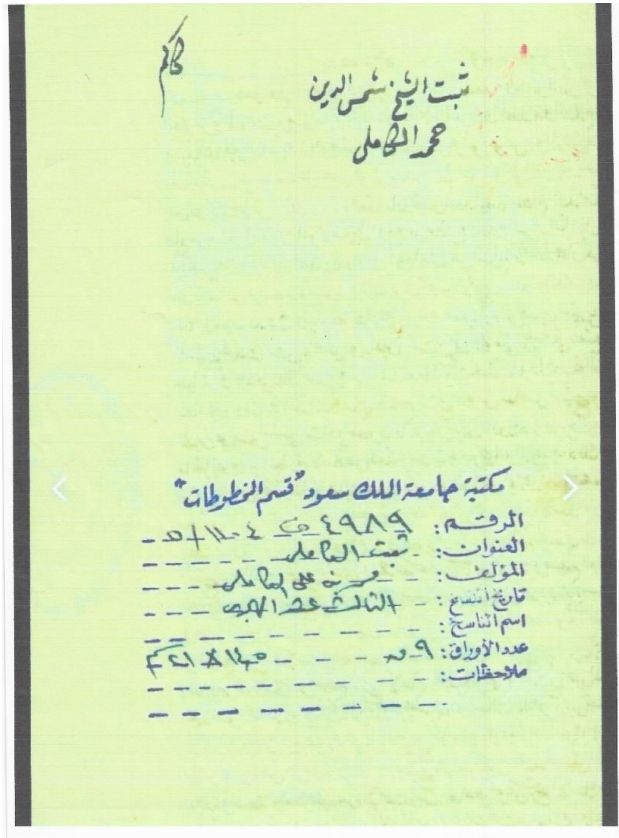 ثبت الشيخ شمس الدين
محمد الكاملي
مكتبة جامعة الملك سعود "قسم المخطوطات"
الرقم: ٤٩٨٩ ف
العنوان: ثبت الكاملي
المؤلف: محمد بن علي الكاملي
تاريخ النسخ: الثالث عشر الهجري
اسم الناسخ:
عدد الأوراق: ٩
ملاحظات: